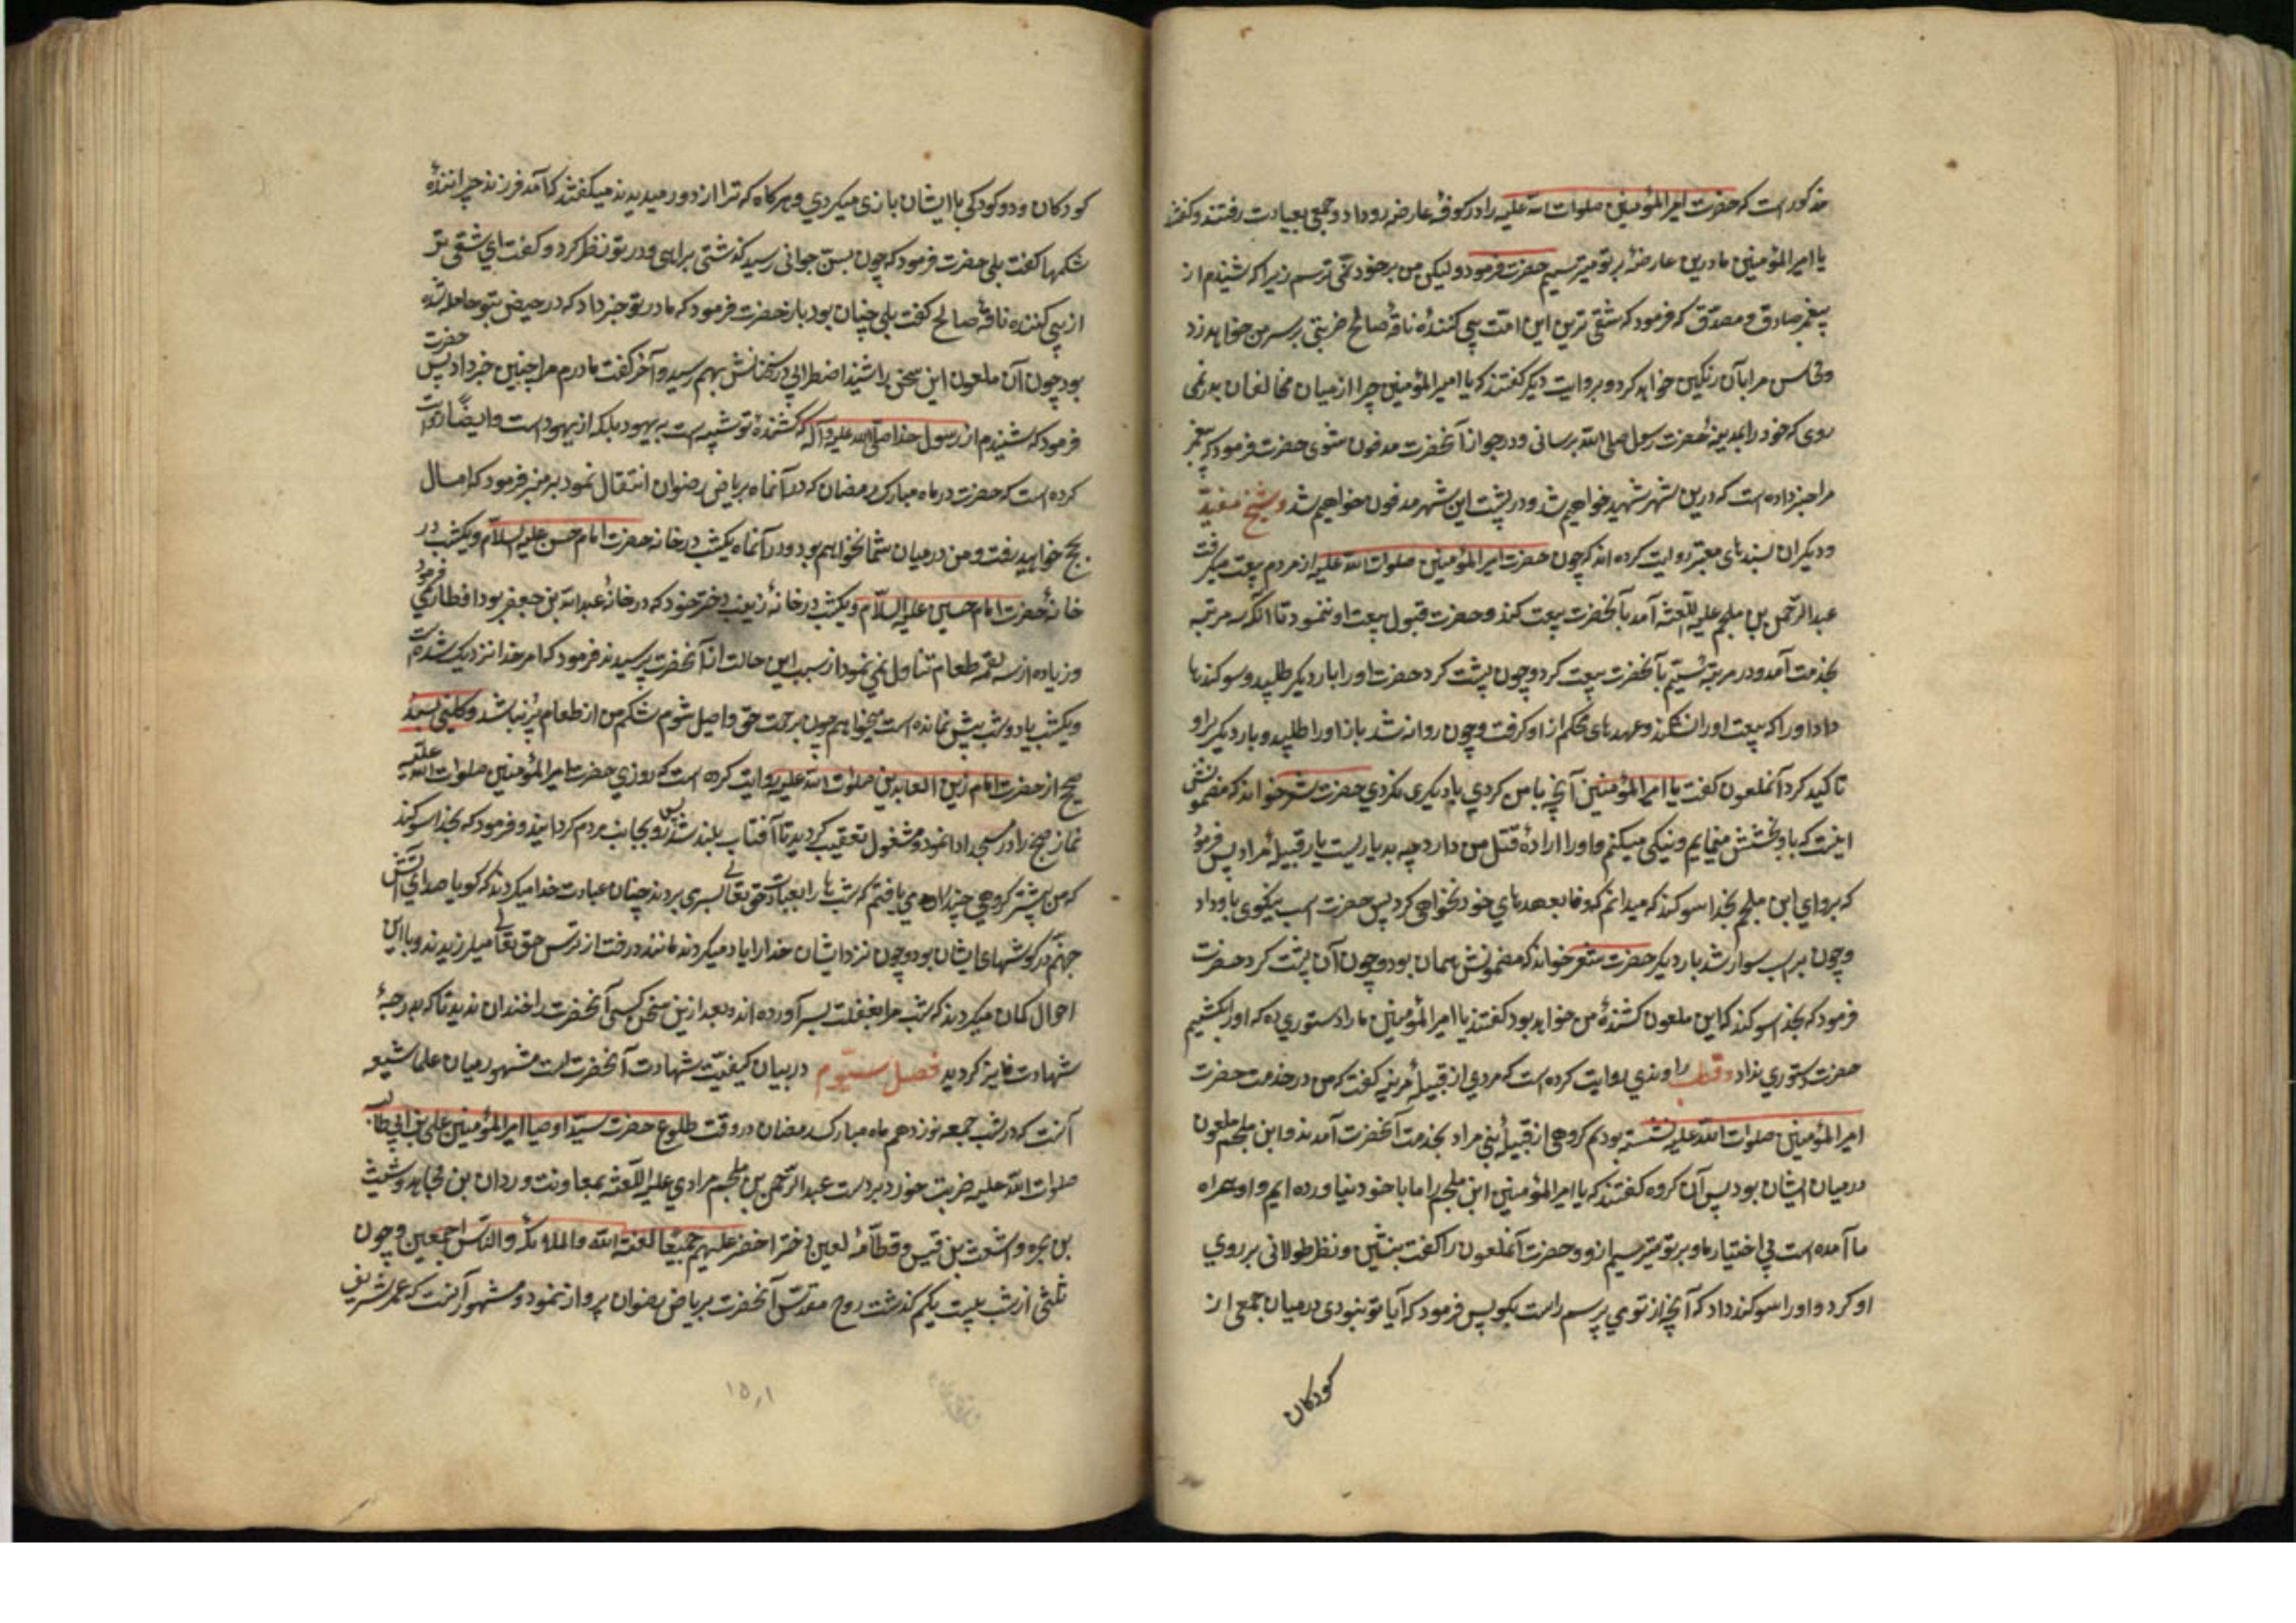 مذکور است که حضرت امیر المؤمنین صلوات الله علیه را در کوفه عارضه رو داد و جمعی بعیادت رفتند و گفتند
یا امیر المؤمنین ما درین عارضه بر تو میترسیم حضرت فرمود و لیکن من بر خود نمی ترسم زیرا که شنیدم از
پیغمبر صادق و مصدّق که فرمود که شقی ترین این امت پی کنندهٔ ناقهٔ صالح ضربتی بر سر من خواهد زد
و محاسن مرا بآن رنگین خواهد کرد و بروایت دیگر گفتند که یا امیر المؤمنین چرا از میان مخالفان بدر نمی
روی که خود را بمدینهٔ حضرت رسول صلی الله برسانی و در جوار آنحضرت مدفون شوی حضرت فرمود که پیغمبر
مرا خبر داده است که درین شهر شهید خواهم شد و در پشت این شهر مدفون خواهم شد و شیخ مفید
و دیگران بسندهای معتبر روایت کرده اند که چون حضرت امیر المؤمنین صلوات الله علیه از مردم بیعت میگرفت
عبد الرّحمن بن ملجم علیه اللّعنه آمد بآنحضرت بیعت کند و حضرت قبول بیعت او ننمود تا آنکه سه مرتبه
بخدمت آمد و در مرتبهٔ سیّم بآنحضرت بیعت کرد و چون پشت کرد حضرت او را بار دیگر طلبید و سوگندها
داد او را که بیعت او را نشکند و عهدهای محکم از او گرفت و چون روانه شد باز او را طلبید و بار دیگر بر او
تاکید کرد آنملعون گفت یا امیر المؤمنین آنچه با من کردی با دیگری نکردی حضرت شعر خواند که مضمونش
اینست که باو بخشش مینمایم و نیکی میکنم و او را ارادهٔ قتل من دارد چه بد یاریست یار قبیلهٔ مراد پس فرمود
که برو ای ابن ملجم بخدا سوگند که میدانم که وفا بعهدهای خود نخواهی کرد پس حضرت اسب نیکوی باو داد
و چون بر اسب سوار شد بار دیگر حضرت شعر خواند که مضمونش همان بود و چون آن پشت کرد حضرت
فرمود که بخدا سوگند که این ملعون کشندهٔ من خواهد بود گفتند یا امیر المؤمنین ما را دستوری ده که او را بکشیم
حضرت دستوری نداد و قطب راوندی روایت کرده است که مردی از قبیلهٔ مزینه گفت که من در خدمت حضرت
امیر المؤمنین صلوات الله علیه نشسته بودم گروهی از قبیلهٔ بنی مراد بخدمت آنحضرت آمدند و ابن ملجم ملعون
در میان ایشان بود پس آن گروه گفتند که یا امیر المؤمنین ابن ملجم را ما با خود نیاورده ایم و او همراه
ما آمده است بی اختیار ما و بر تو میترسیم از و و حضرت آنملعون را گفت بنشین و نظر طولانی بر روی
او کرد و او را سوگند داد که آنچه از تو می پرسم راست بگو پس فرمود که آیا تو نبودی در میان جمعی از
کودکان
کودکان و دو کودکی با ایشان بازی میکردی و هر گاه که ترا از دور میدیدند میگفتند که آمد فرزند چرانندهٔ
سگها گفت بلی حضرت فرمود که چون بسنّ جوانی رسید گذشتی براهبی و در تو نظر کرد و گفت ای شقی تر
از پی کننده ناقهٔ صالح گفت بلی چنان بود باز حضرت فرمود که مادر تو خبر داد که در حیض بتو حامله شده
بود چون آن ملعون این سخن را شنید اضطرابی در سخنانش بهم رسید و آخر گفت مادرم مرا چنین خبر داد پس حضرت
فرمود که شنیدم از رسول خدا صلّی الله علیه و آله که کشندهٔ تو شبیه است به یهود بلکه از یهود است و ایضاً روایت
کرده است که حضرت در ماه مبارک رمضان که در آنماه بریاض رضوان انتقال نمود بر منبر فرمود که امسال
بحج خواهید رفت و من در میان شما نخواهم بود و در آنماه یکشب در خانه حضرت امام حسن علیه السلام و یکشب در
خانهٔ حضرت امام حسین علیه السلام و یکشب در خانهٔ زینب دختر خود که در خانهٔ عبد الله بن جعفر بود افطار می فرمود
و زیاده از سه لقمه طعام تناول نمی نمود از سبب این حالت از آنحضرت پرسیدند فرمود که امر خدا نزدیک شده است
و یکشب یا دو شب بیش نمانده است میخواهم چون برحمت حق واصل شوم شکم من از طعام پر نباشد و کلینی بسند
صحیح از حضرت امام زین العابدین صلوات الله علیه روایت کرده است که روزی حضرت امیر المؤمنین صلوات الله علیه
نماز صبح را در مسجد ادا نمود و مشغول تعقیب گردید تا آفتاب بلند شد پس رو بجانب مردم گردانید و فرمود که بخدا سوگند
که من پیشتر گروهی چند را می یافتم که شبها را بعبادت حق تعالی بسر می بردند چنان عبادت خدا میکردند که گویا صدای آتش
جهنم در گوشهای ایشان بود و چون نزد ایشان خدا را یاد میکردند مانند درخت از ترس حق تعالی میلرزیدند و با این
احوال گمان میکردند که شب را بغفلت بسر آورده اند و بعد ازین سخن کسی آنحضرت را خندان ندید تا که بدرجهٔ
شهادت فایز گردید فصل سیّوم در بیان کیفیّت شهادت آنحضرت است مشهور میان علما شیعه
آنست که در شب جمعه نوزدهم ماه مبارک رمضان در وقت طلوع حضرت سیّد اوصیا امیر المؤمنین علی بن ابی طالب
صلوات الله علیه ضربت خورد بر دست عبد الرّحمن بن ملجم مرادی علیه اللّعنه بمعاونت وردان بن مجاهد و شبیب
بن بجره و اشعث بن قیس و قطامهٔ لعین دختر اخضر علیهم جمیعاً لعنة الله والملائکة والناس اجمعین و چون
ثلثی از شب بیست یکم گذشت روح مقدّس آنحضرت بریاض رضوان پرواز نمود و مشهور آنست که عمر شریف